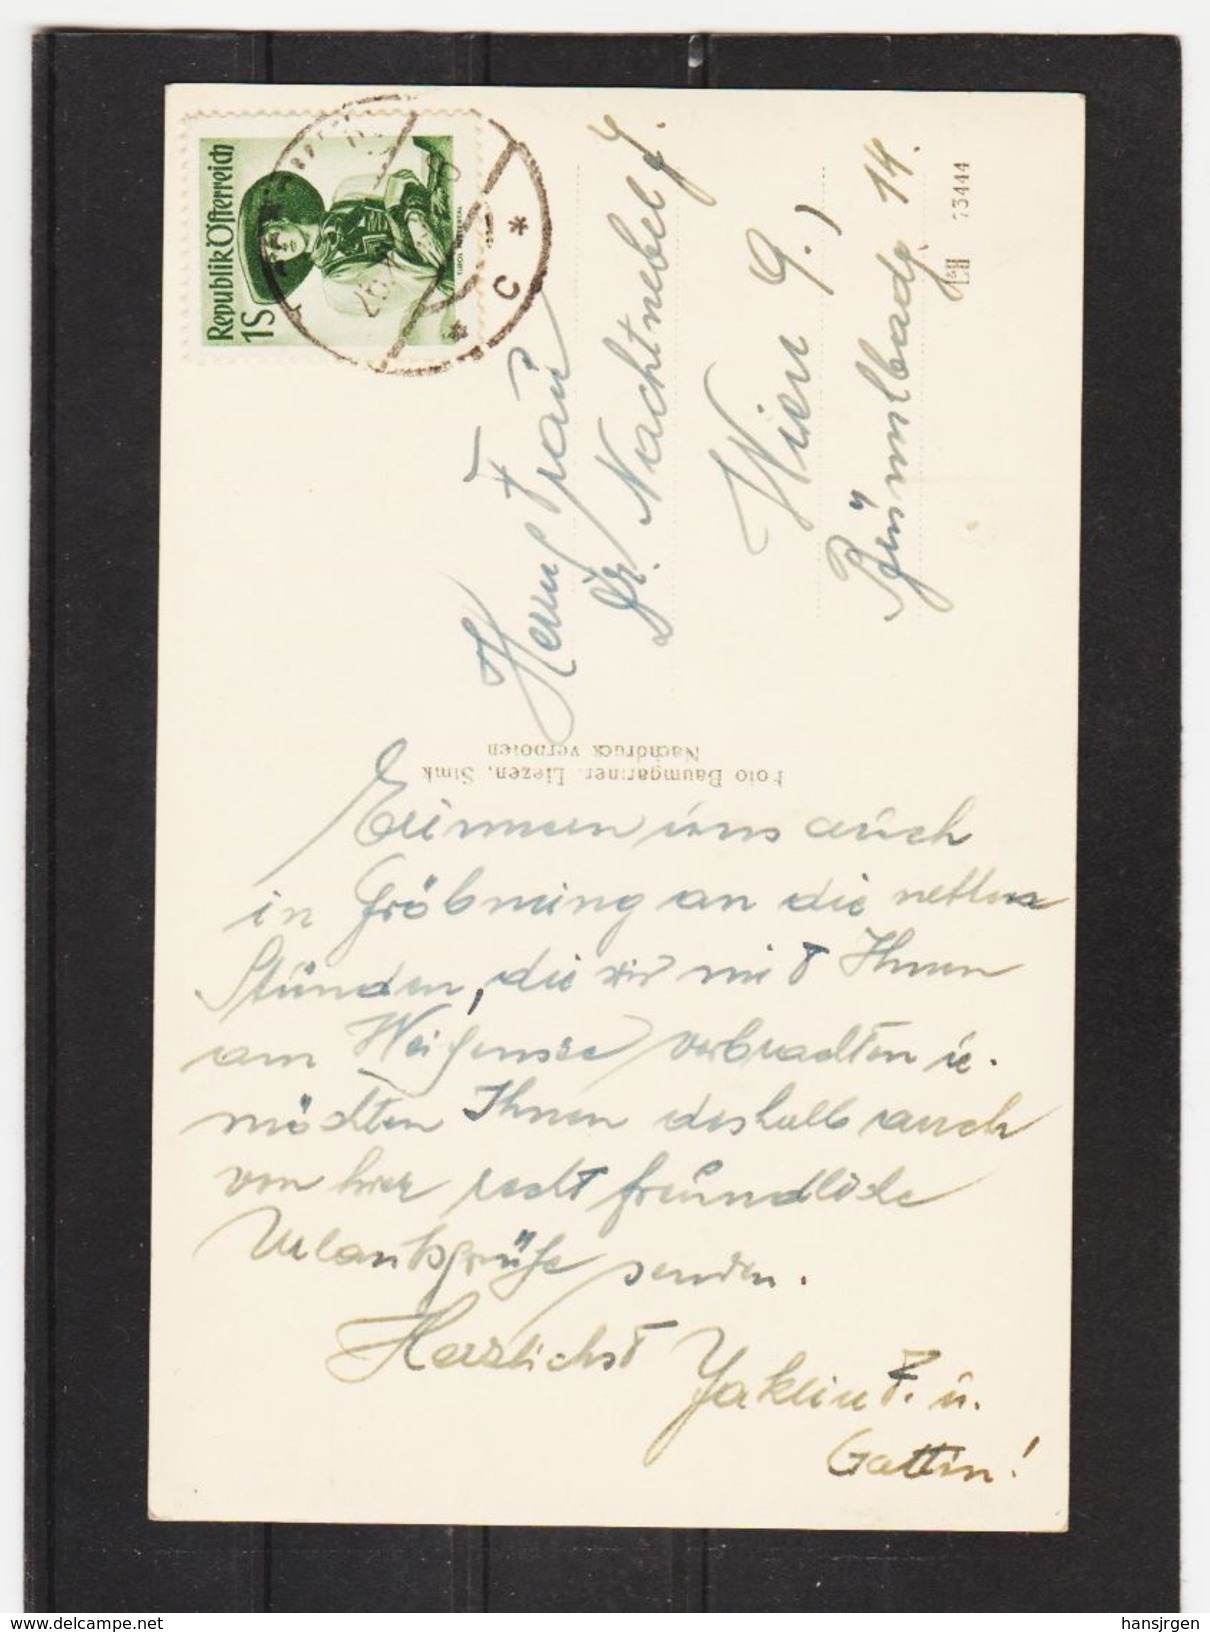 Republik Österreich
1S
C
Herrn u. Frau
Dr. Nachtnebel J.
Wien 9.,
Brünnlbadg. 14.
L&H 73444
Foto Baumgartner, Liezen, Stmk
Nachdruck verboten
Erinnern uns auch
in Gröbming an die netten
Stunden, die wir mit Ihnen
am Weißensee verbrachten u.
möchten Ihnen deshalb auch
von hier recht freundliche
Urlaubsgrüße senden.
Herzlichst Jaklin F. u.
Gattin!
delcampe.net
hansjrgen